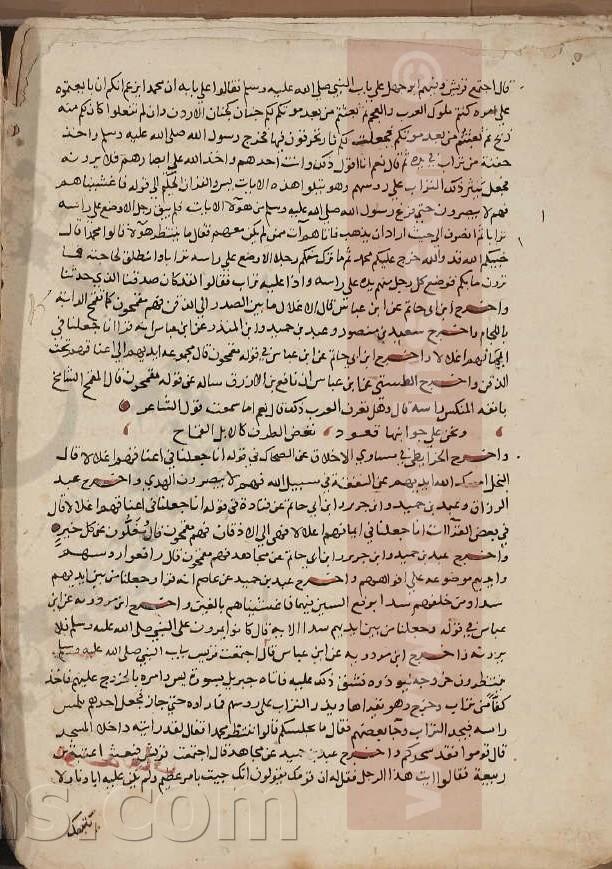 قال اجتمع قريش وفيهم ابو جهل على باب النبي صلى الله عليه وسلم فقالوا على بابه ان محمدا يزعم انكم ان بايعتموه
على امره كنتم ملوك العرب والعجم ثم بعثتم من بعد موتكم لكم جنان كجنان الاردن وان لم تفعلوا كان لكم منه
ذبح ثم بعثتم من بعد موتكم فجعلت لكم نار تحرقون فيها فخرج رسول الله صلى الله عليه وسلم واخذ
حفنة من تراب في يده ثم قال نعم انا اقول ذلك وانت احدهم واخذ الله على ابصارهم فلا يرونه
فجعل ينثر ذلك التراب على روسهم وهو يتلوا هذه الايات يس والقران الحكيم الى قوله فاغشيناهم
فهم لا يبصرون حتى فرغ رسول الله صلى الله عليه وسلم من هولاء الايات فلم يبق رجل الا وضع على راسه
ترابا ثم انصرف الى حيث اراد ان يذهب فاتاهم آت ممن لم يكن معهم فقال ما ينتظر هولاء قالوا محمدا قال
خيبكم الله قد والله خرج عليكم محمد ثم ما ترك منكم رجلا الا وضع على راسه ترابا وانطلق لحاجته فما
ترون ما بكم فوضع كل رجل منهم يده على راسه واذا عليه تراب فقالوا لقد كان صدقنا الذي حدثنا
واخرج ابن ابي حاتم عن ابن عباس قال الاغلال ما بين الصدر الى الذقن فهم مقمحون كما تقمح الدابة
باللجام واخرج سعيد بن منصور وعبد بن حميد وابن المنذر عن ابن عباس انه قرا انا جعلنا في
ايمانهم اغلالا واخرج ابن ابي حاتم عن ابن عباس في قوله مقمحون قال مجموعة ايديهم الى اعناقهم تحت
الذقن واخرج الطستي عن ابن عباس ان نافع بن الازرق ساله عن قوله مقمحون قال المقمح الشامخ
بانفه المنكس براسه قال وهل تعرف العرب ذلك قال نعم اما سمعت قول الشاعر
ونحن على جوانبها قعود نغض الطرف كالابل القماح
واخرج الخرايطي في مساوي الاخلاق عن الضحاك في قوله انا جعلنا في اعناقهم اغلالا قال
البخل امسك الله ايديهم عن النفقة في سبيل الله فهم لا يبصرون الهدي واخرج عبد
الرزاق وعبد بن حميد وابن جرير وابن ابي حاتم عن قتادة في قوله انا جعلنا في اعناقهم اغلالا قال
في بعض القراات انا جعلنا في ايمانهم اغلالا فهي الى الاذقان فهم مقمحون قال مغلولون عن كل خير
واخرج عبد بن حميد وابن جرير وابن ابي حاتم عن مجاهد فهم مقمحون قال رافعوا روسهم
وايديهم موضوعة على افواههم واخرج عبد بن حميد عن عاصم انه قرا وجعلنا من بين ايديهم
سدا ومن خلفهم سدا برفع السين فيهما فاغشيناهم بالغين واخرج ابن مردويه عن ابن
عباس في قوله وجعلنا من بين ايديهم سدا الاية قال كانوا يمرون على النبي صلى الله عليه وسلم فلا
يرونه واخرج ابن مردويه عن ابن عباس قال اجتمعت قريش بباب النبي صلى الله عليه وسلم
ينتظرون خروجه ليوذوه فشق ذلك عليه فاتاه جبريل بسورة يس وامره بالخروج عليهم فاخذ
كفا من تراب وخرج وهو يقراها ويذر التراب على روسهم فما راوه حتى جاز فجعل احدهم يلمس
راسه فيجد التراب وجا بعضهم فقال ما يجلسكم قالوا ننتظر محمدا فقال لقد رايته داخلا المسجد
قال قوموا فقد سحركم واخرج عبد بن حميد عن مجاهد قال اجتمعت قريش فبعثوا عتبة بن
ربيعة فقالوا ايت هذا الرجل فقل له ان قومك يقولون انك جيت بامر عظيم ولم يكن عليه اباونا ولا